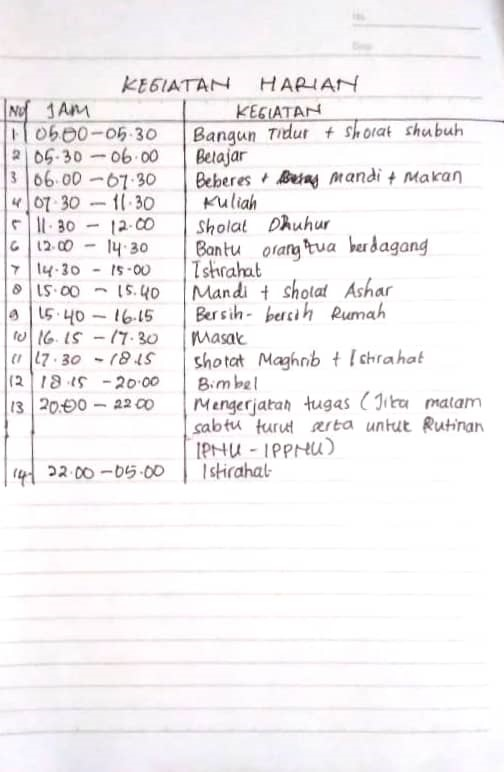 KEGIATAN HARIAN
No JAM KEGIATAN
1. 05.00-05.30 Bangun Tidur + sholat shubuh
2 05.30 - 06.00 Belajar
3 06.00 - 07.30 Beberes + Mandi + Makan
4 07.30 - 11.30 Kuliah
5 11.30 - 12.00 Sholat Dhuhur
6 12.00 - 14.30 Bantu orang tua berdagang
7 14.30 - 15.00 Istirahat
8 15.00 - 15.40 Mandi + sholat Ashar
9 15.40 - 16.15 Bersih-bersih Rumah
10 16.15 - 17.30 Masak
11 17.30 - 18.15 Sholat Maghrib + Istirahat
12 18.15 - 20.00 Bimbel
13 20.00 - 22.00 Mengerjakan tugas (Jika malam
sabtu turut serta untuk Rutinan
IPNU - IPPNU)
14. 22.00 - 05.00 Istirahat